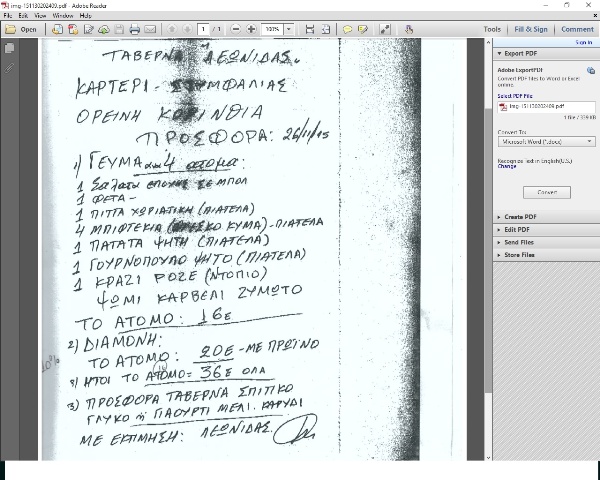 img-151130202409.pdf - Adobe Reader
File Edit View Window Help
Open
1 / 1
100%
Tools Fill & Sign Comment
Sign In
Export PDF
Adobe ExportPDF
Convert PDF files to Word or Excel online.
Select PDF File:
img-151130202409.pdf
1 file / 339 KB
Convert To:
Microsoft Word (*.docx)
Recognize Text in English(U.S.)
Change
Convert
Create PDF
Edit PDF
Send Files
Store Files
ΤΑΒΕΡΝΑ ΛΕΩΝΙΔΑΣ.
ΚΑΡΤΕΡΙ - ΣΤΥΜΦΑΛΙΑΣ
ΟΡΕΙΝΗ ΚΟΡΙΝΘΙΑ
ΠΡΟΣΦΟΡΑ: 26/11/15
1) ΓΕΥΜΑ ανα 4 ατομα:
1 Σαλατα ΕΠΟΧΗΣ ΣΕ ΜΠΟΛ
1 ΦΕΤΑ -
1 ΠΙΤΤΑ ΧΩΡΙΑΤΙΚΗ (ΠΙΑΤΕΛΑ)
4 ΜΠΙΦΤΕΚΙΑ (ΦΡΕΣΚΟ ΚΥΜΑ) - ΠΙΑΤΕΛΑ
1 ΠΑΤΑΤΑ ΨΗΤΗ (ΠΙΑΤΕΛΑ)
1 ΓΟΥΡΝΟΠΟΥΛΟ ΨΗΤΟ (ΠΙΑΤΕΛΑ)
1 ΚΡΑΣΙ ΡΟΖΕ (ΝΤΟΠΙΟ)
ΨΩΜΙ ΚΑΡΒΕΛΙ ΖΥΜΩΤΟ
ΤΟ ΑΤΟΜΟ: 16ε
2) ΔΙΑΜΟΝΗ:
ΤΟ ΑΤΟΜΟ: 20Ε - ΜΕ ΠΡΩΙΝΟ
ΗΤΟΙ ΤΟ ΑΤΟΜΟ = 36ε ΟΛΑ
3) ΠΡΟΣΦΟΡΑ ΤΑΒΕΡΝΑ ΣΠΙΤΙΚΟ
ΓΛΥΚΟ ή ΓΙΑΟΥΡΤΙ ΜΕΛΙ. ΚΑΡΥΔΙ
ΜΕ ΕΚΤΙΜΗΣΗ: ΛΕΩΝΙΔΑΣ.